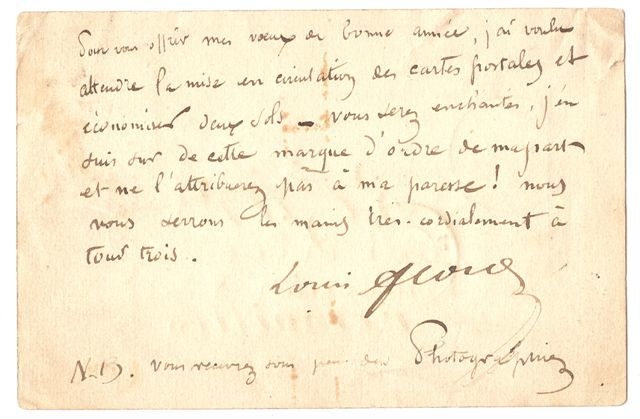 Pour vous offrir mes vœux de bonne année, j'ai voulu
attendre la mise en circulation des cartes postales et
économiser deux sols – vous serez enchantés, j'en
suis sur de cette marque d'ordre de ma part
et ne l'attribuerez pas à ma paresse! nous
vous serrons les mains très-cordialement à
tous trois.
Louis
N.B. vous recevrez sous peu des Photographies